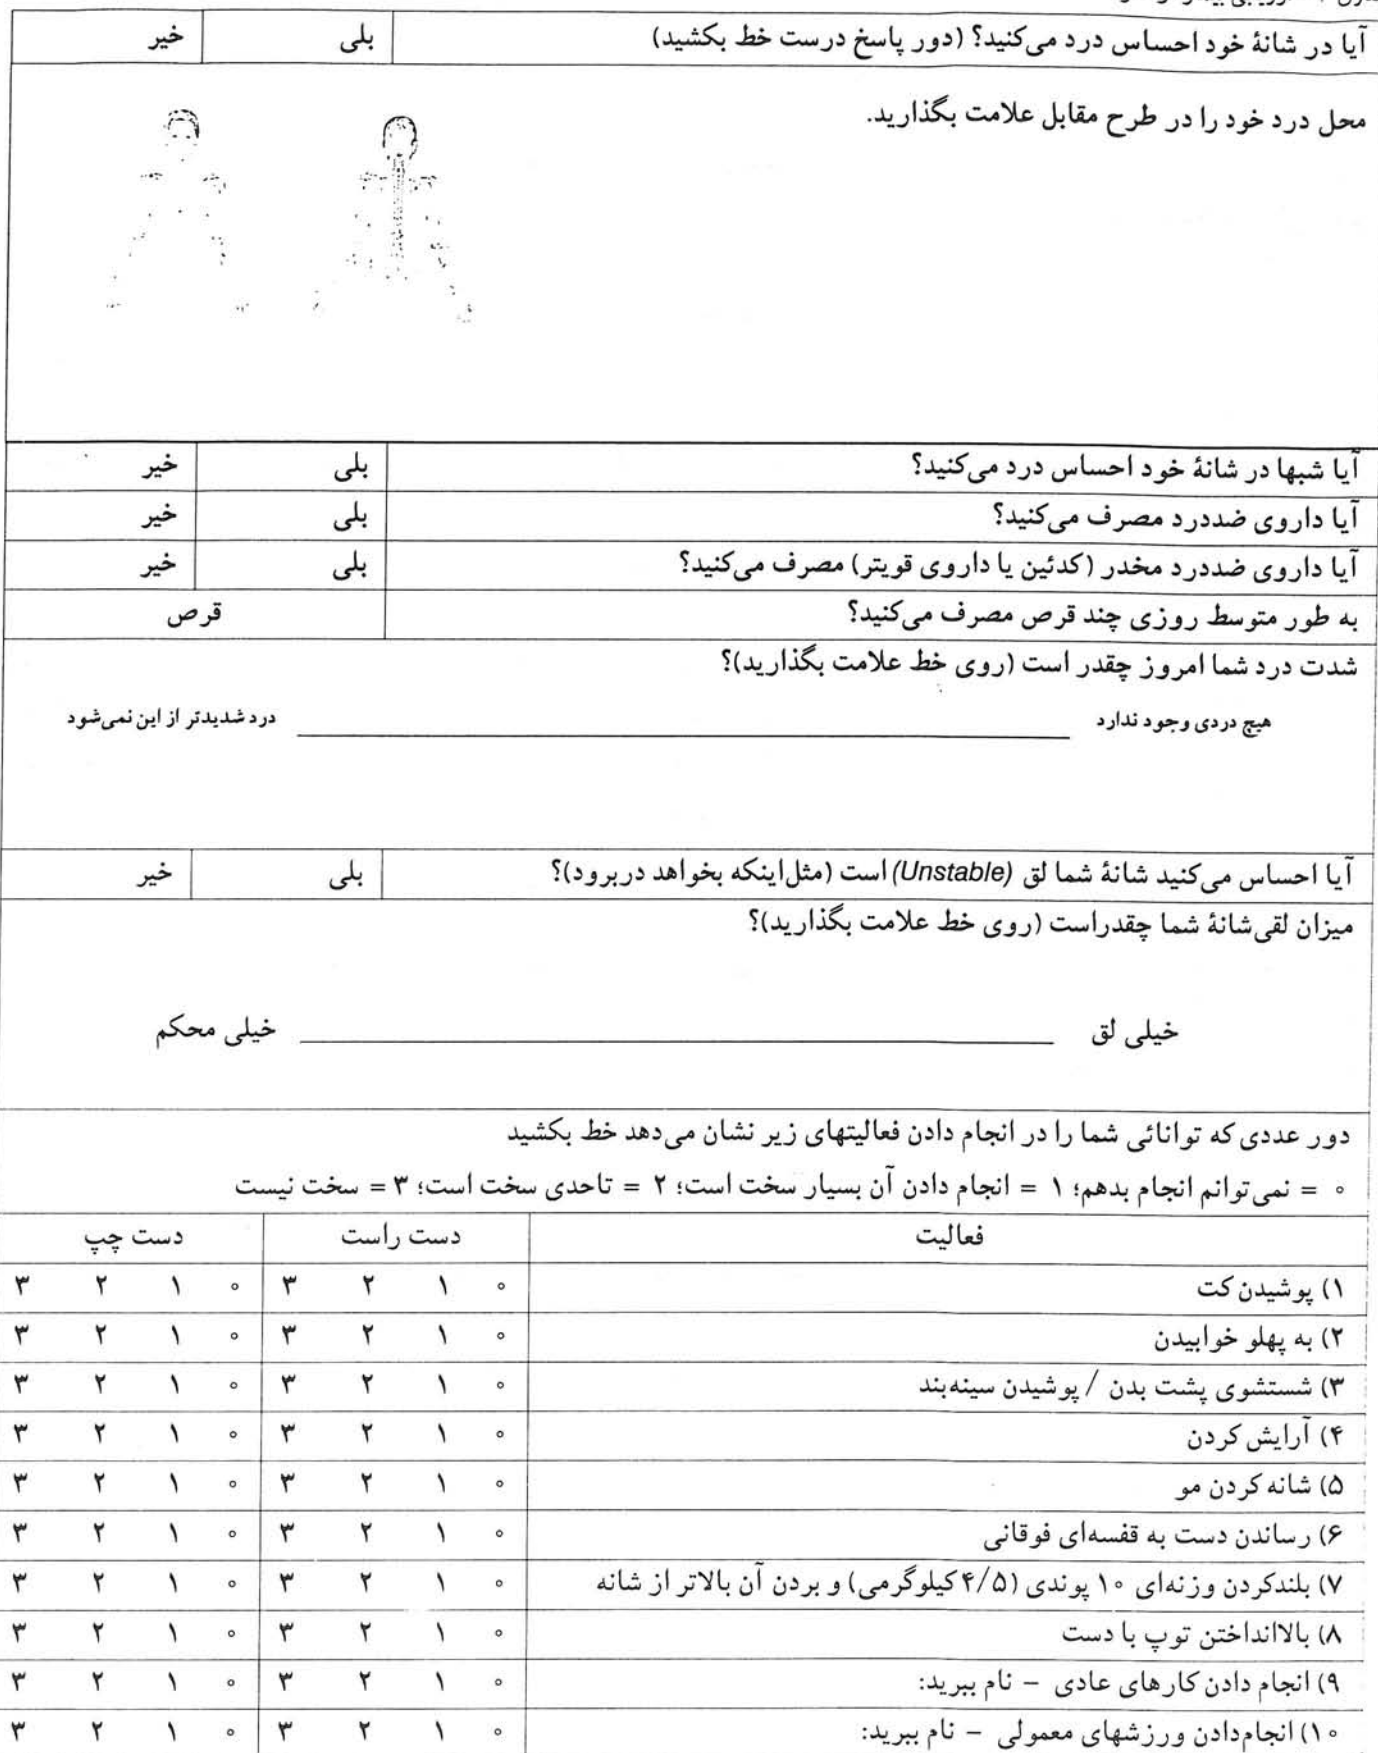 آیا در شانهٔ خود احساس درد می‌کنید؟ (دور پاسخ درست خط بکشید) بلی خیر
محل درد خود را در طرح مقابل علامت بگذارید.
آیا شبها در شانهٔ خود احساس درد می‌کنید؟ بلی خیر
آیا داروی ضددرد مصرف می‌کنید؟ بلی خیر
آیا داروی ضددرد مخدر (کدئین یا داروی قویتر) مصرف می‌کنید؟ بلی خیر
به طور متوسط روزی چند قرص مصرف می‌کنید؟ قرص
شدت درد شما امروز چقدر است (روی خط علامت بگذارید)؟
هیچ دردی وجود ندارد درد شدیدتر از این نمی‌شود
آیا احساس می‌کنید شانهٔ شما لق (Unstable) است (مثل‌اینکه بخواهد دربرود)؟ بلی خیر
میزان لقی‌شانهٔ شما چقدراست (روی خط علامت بگذارید)؟
خیلی لق خیلی محکم
دور عددی که توانائی شما را در انجام دادن فعالیتهای زیر نشان می‌دهد خط بکشید
۰ = نمی‌توانم انجام بدهم؛ ۱ = انجام دادن آن بسیار سخت است؛ ۲ = تاحدی سخت است؛ ۳ = سخت نیست
فعالیت دست راست دست چپ
۱) پوشیدن کت ۰ ۱ ۲ ۳ ۰ ۱ ۲ ۳
۲) به پهلو خوابیدن ۰ ۱ ۲ ۳ ۰ ۱ ۲ ۳
۳) شستشوی پشت بدن / پوشیدن سینه‌بند ۰ ۱ ۲ ۳ ۰ ۱ ۲ ۳
۴) آرایش کردن ۰ ۱ ۲ ۳ ۰ ۱ ۲ ۳
۵) شانه کردن مو ۰ ۱ ۲ ۳ ۰ ۱ ۲ ۳
۶) رساندن دست به قفسه‌ای فوقانی ۰ ۱ ۲ ۳ ۰ ۱ ۲ ۳
۷) بلندکردن وزنه‌ای ۱۰ پوندی (۴/۵ کیلوگرمی) و بردن آن بالاتر از شانه ۰ ۱ ۲ ۳ ۰ ۱ ۲ ۳
۸) بالاانداختن توپ با دست ۰ ۱ ۲ ۳ ۰ ۱ ۲ ۳
۹) انجام دادن کارهای عادی – نام ببرید: ۰ ۱ ۲ ۳ ۰ ۱ ۲ ۳
۱۰) انجام‌دادن ورزشهای معمولی – نام ببرید: ۰ ۱ ۲ ۳ ۰ ۱ ۲ ۳